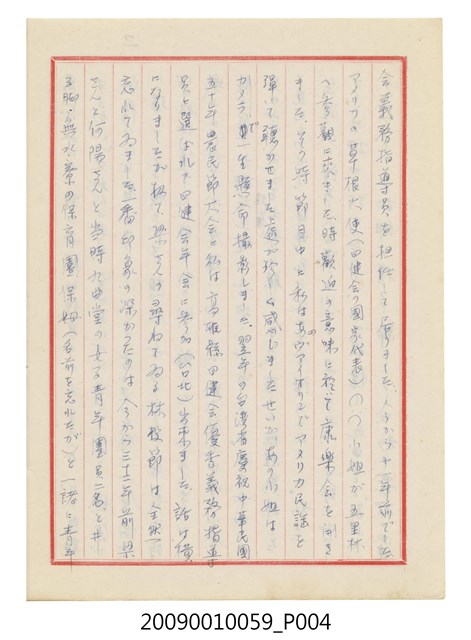 会義務指導員を担任して居りました、今から十一年前でした
アメリカの草根大使(四健会の国家代表)の〇〇小姐が五里林
へ参観に来ました時歓迎の意味に於て康樂会を開き
ました、その時節目中に私はヴァイオリンでアメリカ民謡を
弾いて聴かせました處が珍らしく感じましたせいか、あの小姐は
カメラで一生懸命撮影しました、翌年の台湾省慶祝中華民国
五十年農民節大会に私は高雄縣四健会優秀義務指導
員に選ばれて四健会年会に参加(台北)出来ました 話は横
になりましたが扨て、梁さんの尋ねてゐる林投節は全然
忘れてゐました一番印象の深かつたのは今から三十二年前 梁
さんと何陽さんと当時九曲堂の女子青年團員二名と井
上駒・無水寮の保育園保姆(名前を忘れたが)と一緒に青年
20090010059_P004